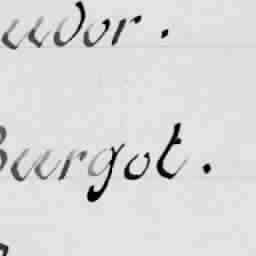 udor.
Burgot.